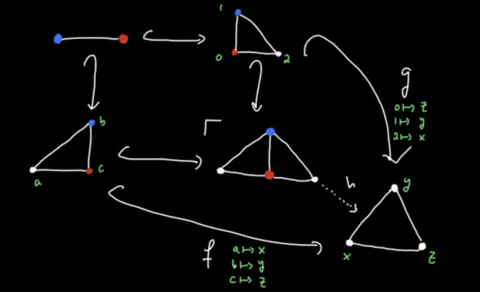 1
0 2
g
0 ↦ z
1 ↦ y
2 ↦ x
b
a c
h
y
x z
f
a ↦ x
b ↦ y
c ↦ z